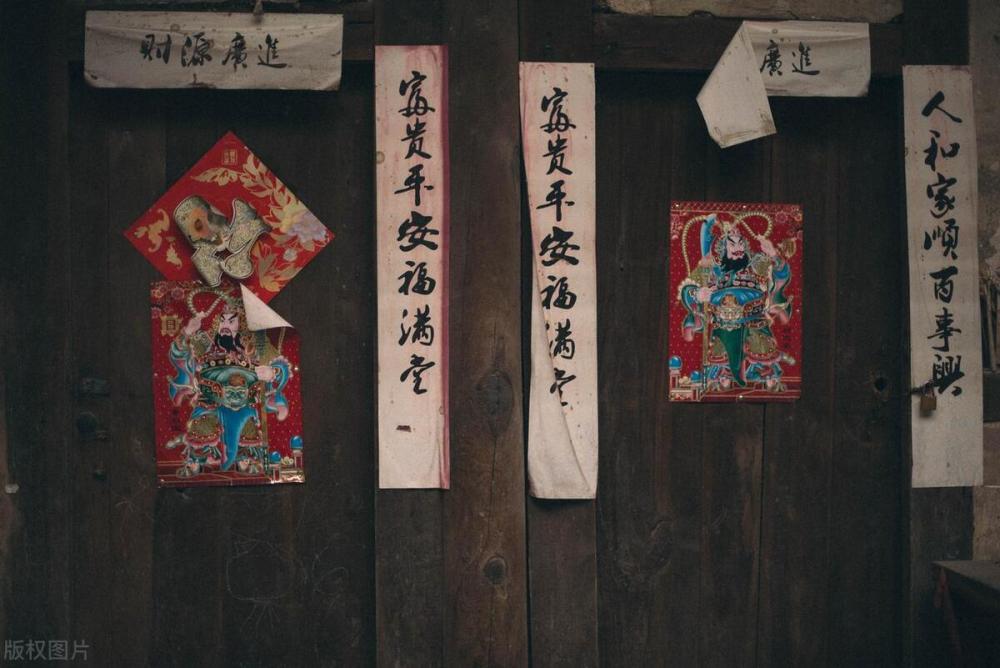 财源廣進
富贵平安福满堂
富贵平安福满堂
廣進
人和家顺百事興
版权图片